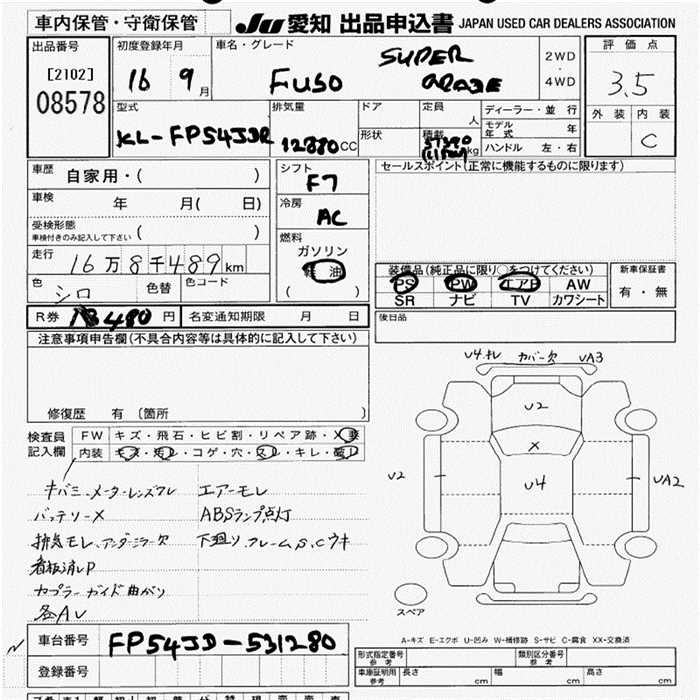 車内保管・守衛保管
JU 愛知 出品申込書 JAPAN USED CAR DEALERS ASSOCIATION
出品番号
[2102]
08578
初度登録年月
16 9月
車名・グレード
FUSO SUPER GREAT
2WD
・
4WD
評価点
3.5
外装 内装
C
型式
KL-FP54JDR
排気量
12880CC
ドア
形状
定員
人
積載
kg
ディーラー・並行
モデル年式 年
ハンドル 左・右
車歴 自家用・( )
車検 年 月( 日)
受検形態
車検付きのみ記入して下さい ( )
走行 16万8千489km
色 シロ 色替 色コード
シフト
F7
冷房
AC
燃料
ガソリン
軽油
( )
セールスポイント(正常に機能するものに限ります)
装備品(純正品に限り○をつけてください)
PS PW エアB AW
SR ナビ TV カワシート
新車保証書
有・無
後日品
R券 13480円 名変通知期限 月 日
注意事項申告欄(不具合内容等は具体的に記入して下さい)
修復歴 有 〔箇所 〕
検査員記入欄
FW キズ・飛石・ヒビ割・リペア跡・X要
内装 キズ・汚レ・コゲ・穴・スレ・キレ・破レ
キバミ、メーターレンズワレ エアーモレ
バッテリーX ABSランプ点灯
排気モレ、アンダーミラー欠 下廻り、フレームS、Cウキ
看板消しP
カプラーガイド曲がり
各AU
U4.キレ カバー欠 UA3
U2
X
U4
U2
UA2
スペア
A-キズ E-エクボ U-凹み W-補修跡 S-サビ C-腐食 XX-交換済
車台番号 FP54JD-531280
登録番号
形式指定番号 参考
類別区分番号 参考
車庫証明用 参考 長さ cm 幅 cm 高さ cm